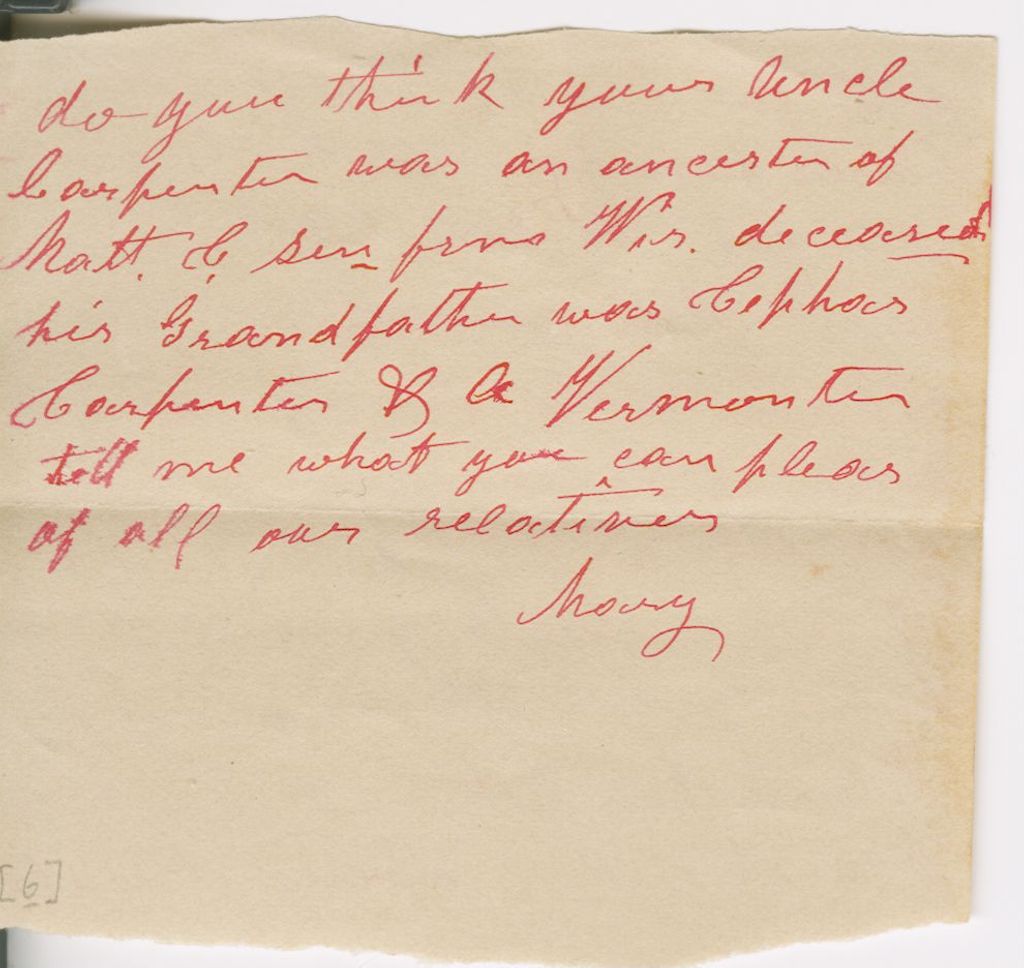 do you think your Uncle
Carpenter was an ancester of
Matt. C. Sen from Wis. deceased
his Grandfather was Cephas
Carpenter & a Vermonter
tell me what you can pleas
of all our relatives
Mary
[6]